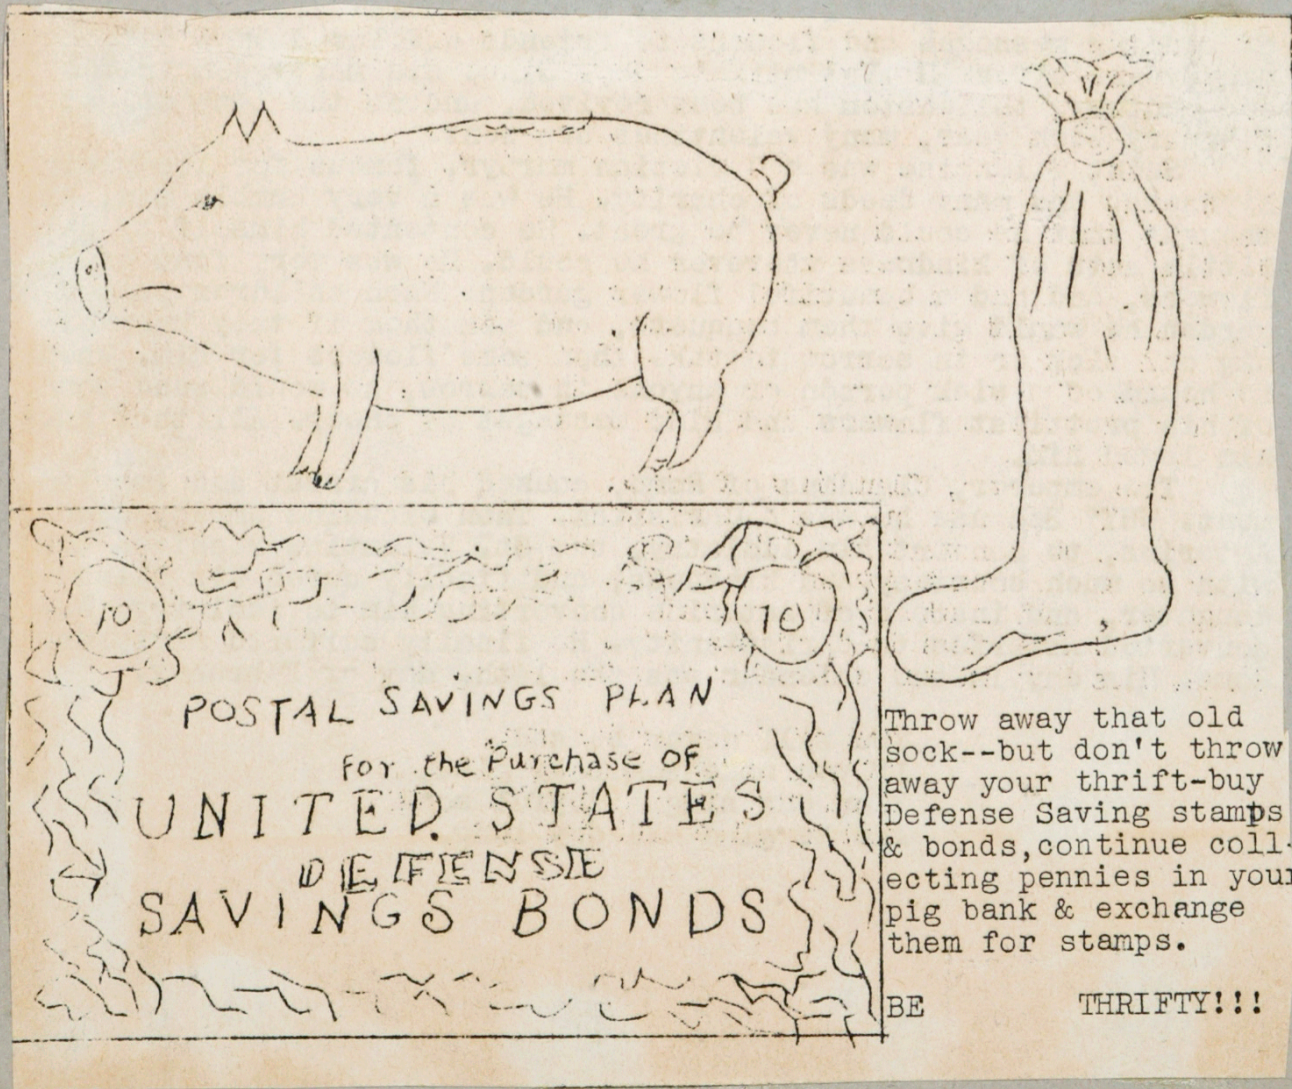 10
10
POSTAL SAVINGS PLAN
For the Purchase of
UNITED. STATES
DEFENSE
SAVINGS BONDS
Throw away that old
sock--but don't throw
away your thrift-buy
Defense Saving stamps
& bonds,continue coll-
ecting pennies in your
pig bank & exchange
them for stamps.
BE THRIFTY!!!